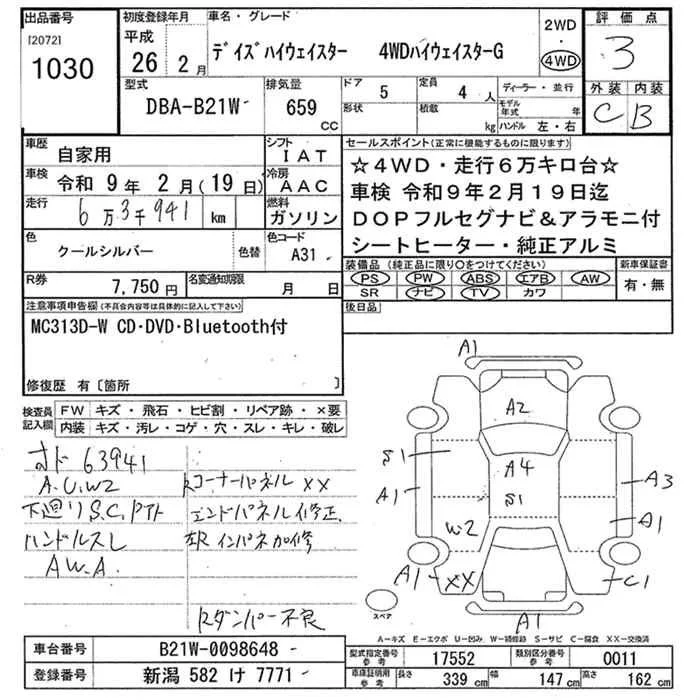 出品番号 初度登録年月 車名・グレード 2WD・4WD 評価点
[2072] 1030 平成 26 2月 デイズハイウェイスター 4WDハイウェイスターG 3
型式 排気量 ドア 5 定員 4人 ディーラー・並行 外装 内装
DBA-B21W 659 CC 形状 積載 kg モデル年式 年 ハンドル 左・右 C B
車歴 自家用 シフト IAT セールスポイント(正常に機能するものに限ります)
☆4WD・走行6万キロ台☆
車検 令和9年2月(19日) 冷房 AAC 車検 令和9年2月19日迄
走行 6万3千941 km 燃料 ガソリン DOPフルセグナビ&アラモニ付
色 クールシルバー 色替 色コード A31 シートヒーター・純正アルミ
装備品(純正品に限り○をつけてください) 新車保証書
R券 7,750円 名変通知期限 月 日 PS PW ABS エアB AW 有・無
SR ナビ TV カワ
注意事項申告欄(不具合内容等は具体的に記入して下さい) 後日品
MC313D-W CD・DVD・Bluetooth付
修復歴 有〔箇所 〕
検査員記入欄 FW キズ・飛石・ヒビ割・リペア跡・×要
内装 キズ・汚レ・コゲ・穴・スレ・キレ・破レ
オド 63941
A.U.W2 Rコーナーパネル XX
下廻りS.C.Pタト エンドパネル修正
ハンドルスレ 左R インパネ加修
AW.A
Rダンパー不良
A1
A2
S1 A4 A3
A1 S1 A1
W2
A1 XX C1
A1
スペア
A-キズ E-エクボ U-凹み W-補修跡 S-サビ C-腐食 XX-交換済
車台番号 B21W-0098648
型式指定番号 参考 17552 類別区分番号 参考 0011
登録番号 新潟 582 け 7771
車庫証明用 参考 長さ 339 cm 幅 147 cm 高さ 162 cm